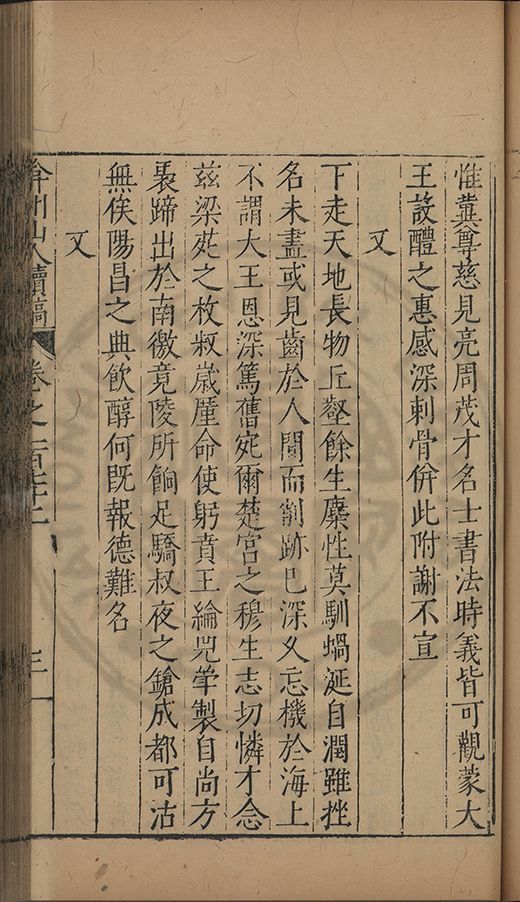 惟冀尊慈見亮周茂才名士書法時義皆可觀蒙大
王設醴之惠感深刺骨併此附謝不宣
又
下走天地長物丘壑餘生麋性莫馴蝸涎自潤雖挫
名未盡或見齒於人間而剷跡已深久忘機於海上
不謂大王恩深篤舊宛爾楚宮之穆生志切憐才念
茲梁苑之枚叔歲廑命使躬賁王綸兕斝製自尚方
褭蹄出於南徼竟陵所餉足驕叔夜之鎗成都可沽
無俟陽昌之典飲醇何既報德難名
又
弇州山人續稿 卷之一百七十二 三